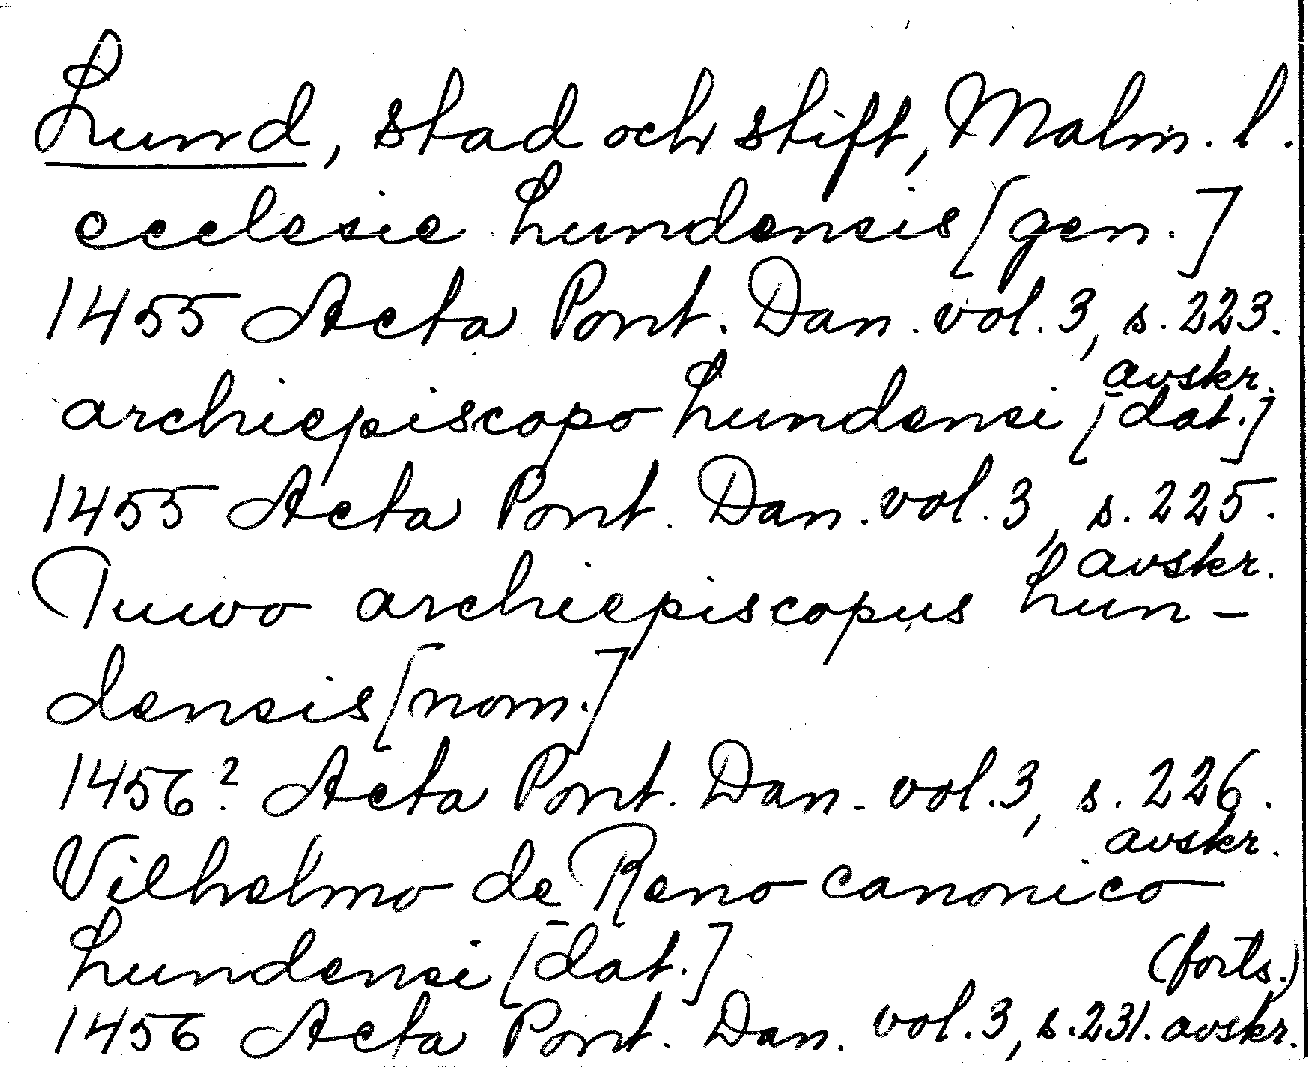 Lund, stad och stift, Malm. l.
ecclesie Lundensis [gen.]
1455 Acta Pont. Dan. vol. 3, s. 223.
avskr.
archiepiscopo Lundensi [dat.]
1455 Acta Pont. Dan. vol. 3, s. 225.
avskr.
Tuwo archiepiscopus Lun-
densis [nom.]
1456? Acta Pont. Dan. vol. 3, s. 226.
avskr.
Vilhelmo de Reno canonico
Lundensi [dat.] (forts.)
1456 Acta Pont. Dan. vol. 3, s. 231. avskr.